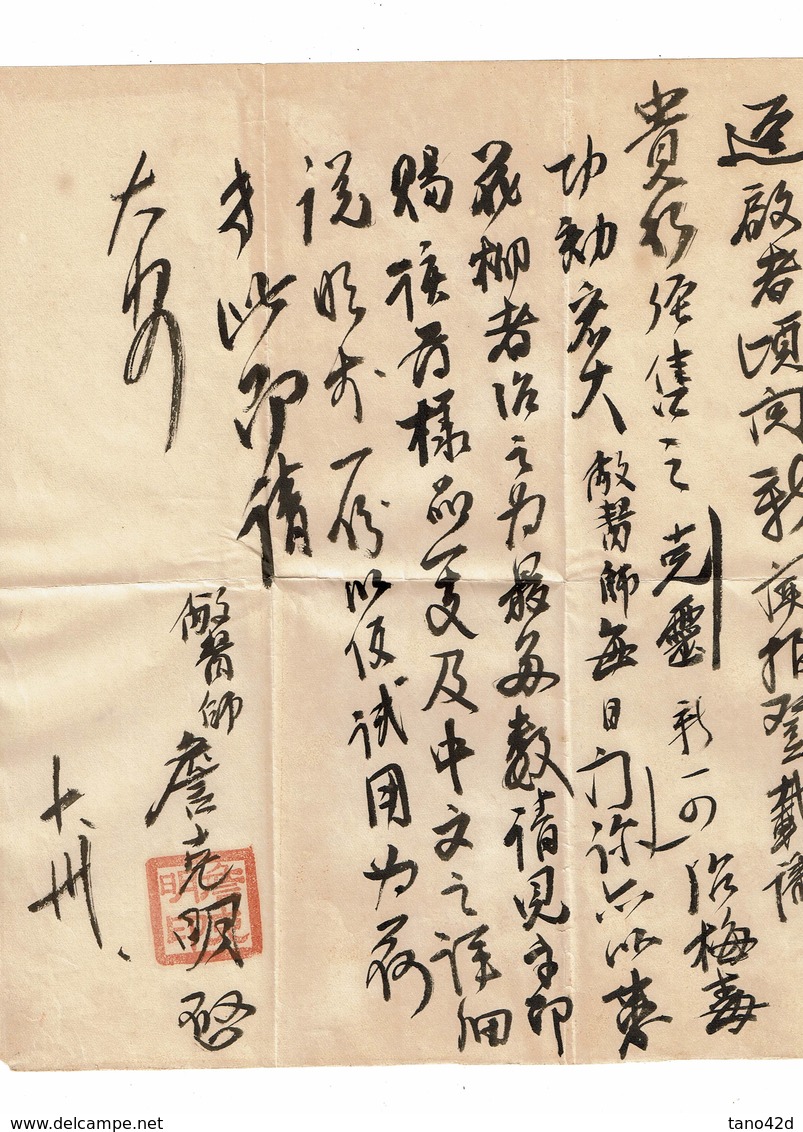 逕啟者頃閱新聞報登載
貴行經售之克靈新一 治梅毒
功効宏大敝醫師每日門診亦以花
柳者治之為最多數請見手即
賜禮寄樣品一支及中文之詳細
說明書一份以便試用為荷
专此即請
大安
敝醫師詹克明啓
十、卅、
delcampe.net
tano42d